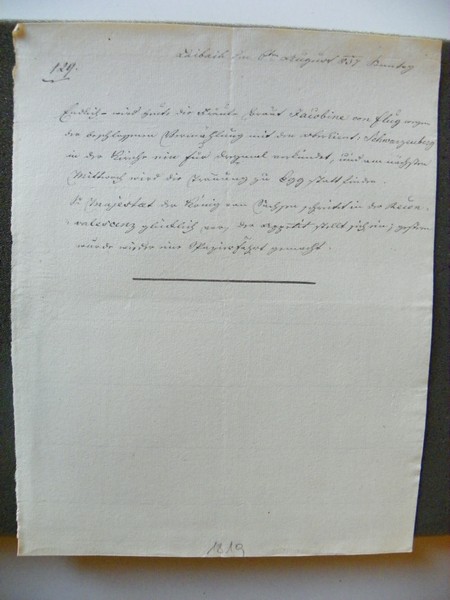 Laibach den 6ten August 837 Sonntag
129.
Endlich wird heute die Fräule Braut Jacobine von Flug wegen
der beschlossenen Vermählung mit den Schwarzenberg
in der Kirche ein für dreymal verkündet, und am nächsten
Mittwoch wird die Trauung zu Egg statt finden.
Sr Majestät der König von Sachsen schreitet in der Recon¬
valescenz glücklich vor, der Appetit stellt sich ein; gestern
wurde wieder eine Spazierfahrt gemacht.
1219